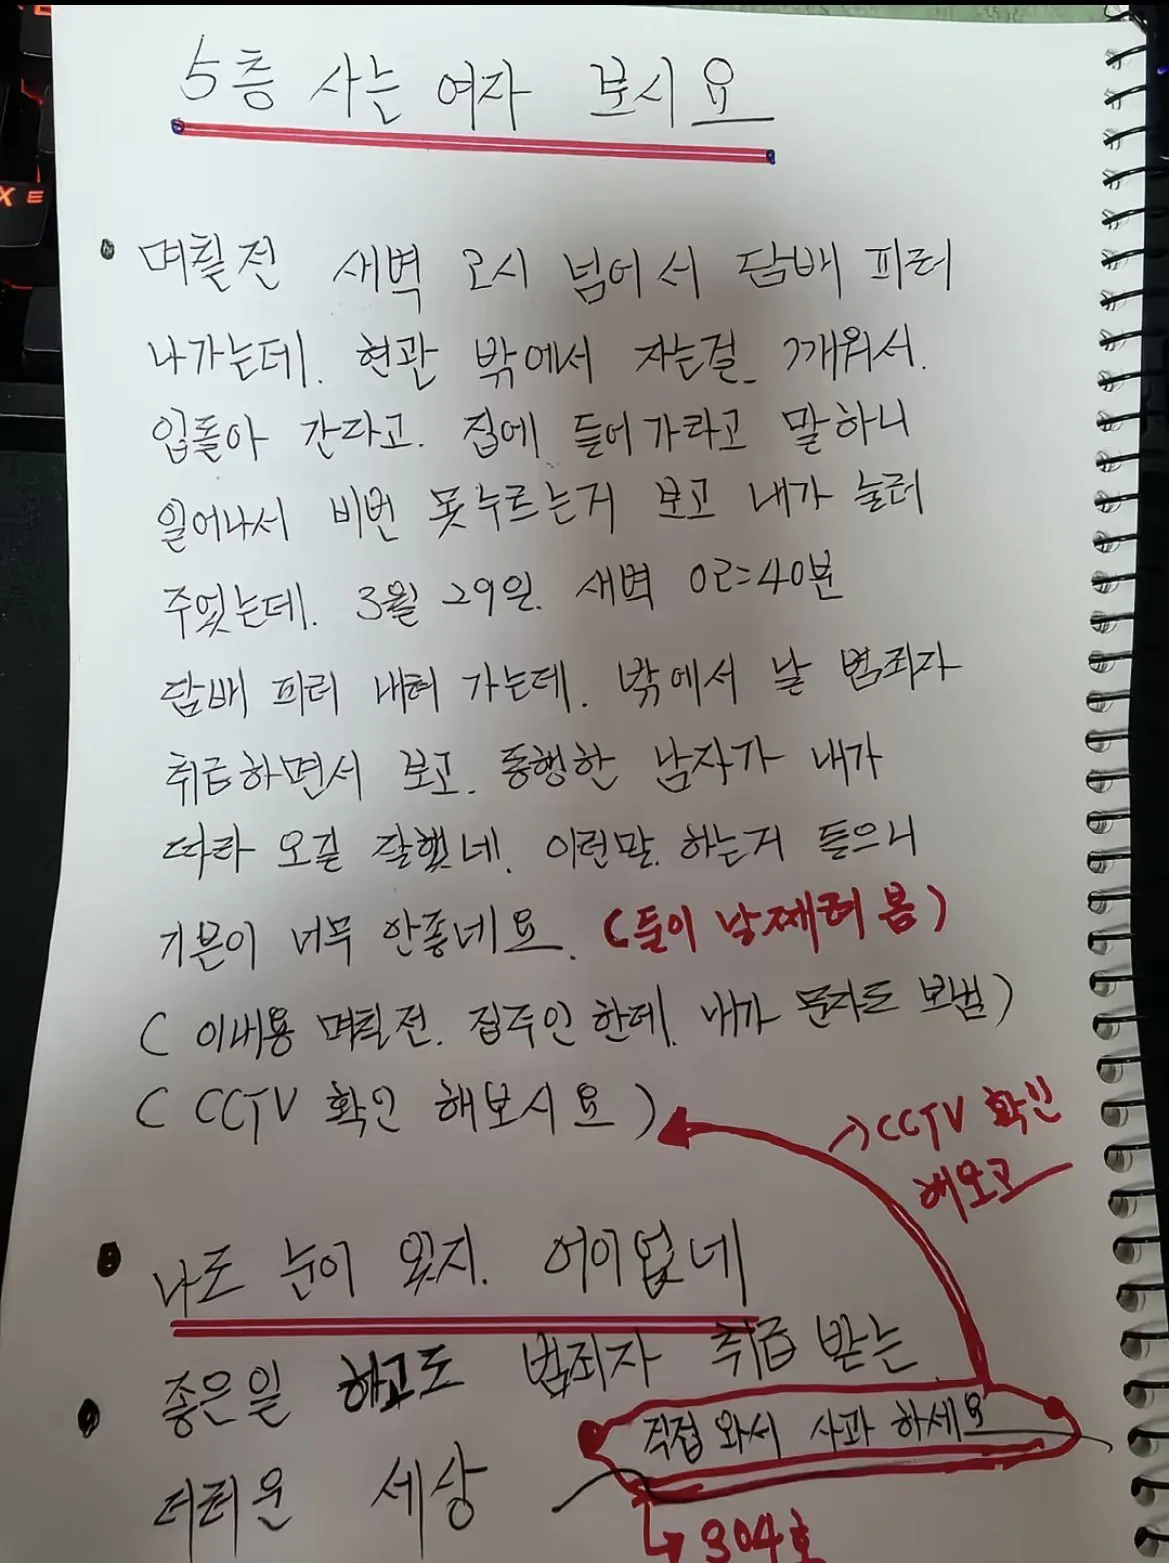 5층 사는 여자 보시요
며칠전 새벽 2시 넘어서 담배 피러
나가는데. 현관 밖에서 자는걸 깨워서.
입돌아 간다고. 집에 들어가라고 말하니
일어나서 비번 못누르는거 보고 내가 눌러
주었는데. 3월 29일. 새벽 02:40분
담배 피러 내려 가는데. 밖에서 날 범죄자
취급하면서 보고. 동행한 남자가 내가
따라 오길 잘했네. 이런말 하는거 들으니
기분이 너무 안좋네요. (둘이 날째려 봄)
( 이내용 며칠전. 집주인 한테. 내가 문자도 보냄)
( CCTV 확인 해보시요 )
→CCTV 확인
해보고
나도 눈이 있지. 어이없네
좋은일 하고도 범죄자 취급 받는
더러운 세상
직접 와서 사과 하세요
304호